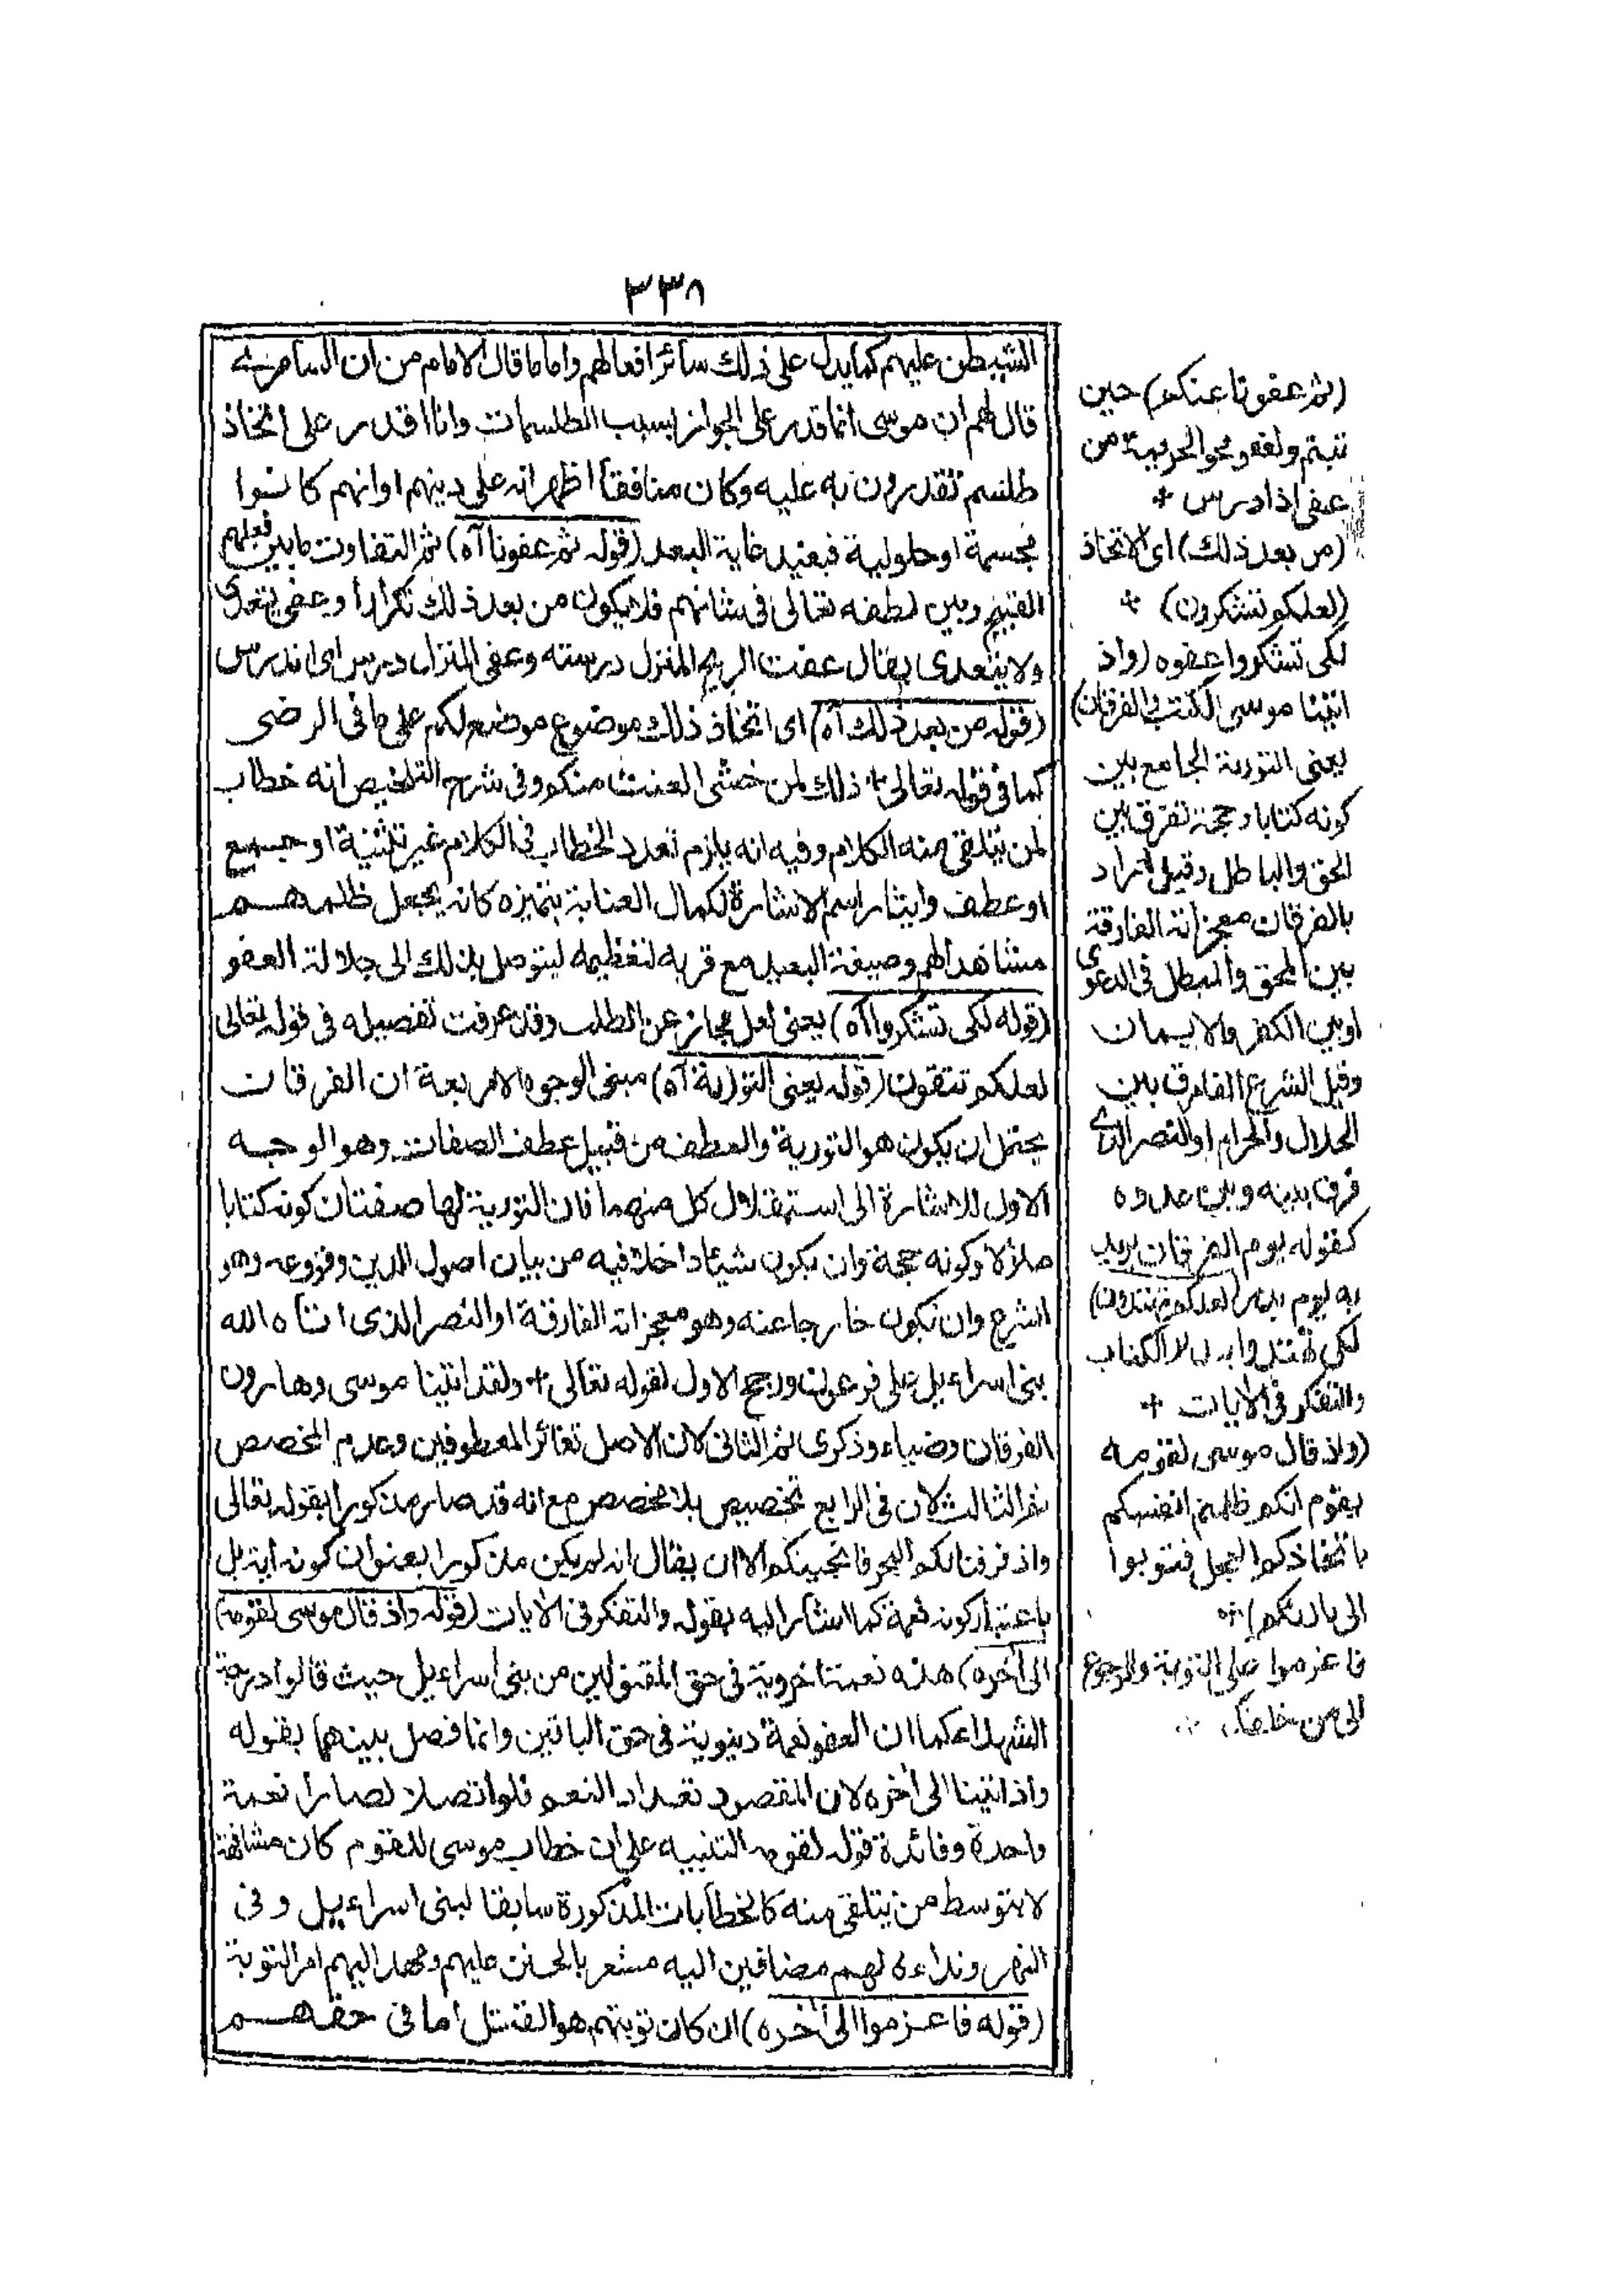 ٣٣٨
الشيطن عليهم كما يدل على ذلك سائر افعالهم واما ما قال الامام من ان السامرى
قال لهم ان موسى انما قدر على الجواز بسبب الطلسمات وانا اقدر على اتخاذ
طلسم تقدرون به عليه وكان منافقا اظهر انه على دينهم او انهم كانوا
مجسمة او حلولية فبعيد غاية البعد (قوله ثم عفونا آه) ثم التفاوت ما بين فعلهم
القبيح وبين لطفه تعالى فى شانهم فلا يكون من بعد ذلك تكرارا وعفى يتعدى
ولا يتعدى يقال عفت الريح المنزل درسته وعفى المنزل درس اى اندرس
(قوله من بعد ذلك آه) اى اتخاذ ذلك موضوع موضع لكم على ما فى الرضى
كما فى قوله تعالى + ذلك لمن خشى العنت منكم وفى شرح التلخيص انه خطاب
لمن يتلقى منه الكلام وفيه انه يلزم تعدد الخطاب فى الكلام غير تثنية او جمع
او عطف وايثار اسم الاشارة لكمال العناية بتميزه كانه يجعل ظلمهم
مشاهدا لهم وصيغة البعيد مع قربه لتعظيمه ليتوصل بذلك الى جلالة العفو
(قوله لكى تشكروا آه) يعنى لعل مجاز عن الطلب وقد عرفت تفصيله فى قوله تعالى
لعلكم تتقون (قوله يعنى التورية آه) مبنى الوجوه الاربعة ان الفرقان
يحتمل ان يكون هو التورية والعطف من قبيل عطف الصفات وهو الوجه
الاول للاشارة الى استقلال كل منهما فان التورية لها صفتان كونه كتابا
منزلا وكونه حجة وان يكون شيئا داخلا فيه من بيان اصول الدين وفروعه وهو
الشرع وان يكون خارجا عنه وهو معجزاته الفارقة او النصر الذى اتاه الله
بنى اسراءيل على فرعون ورجح الاول لقوله تعالى + ولقد اتينا موسى وهارون
الفرقان وضياء وذكرى ثم الثانى لان الاصل تغائر المعطوفين وعدم المخصص
ثم الثالث لان فى الرابع تخصيص بلا مخصص مع انه قد صار مذكورا بقوله تعالى
واذ فرقنا بكم البحر فانجينكم الا ان يقال انه لم يكن مذكورا بعنوان كونه اية بل
باعتبار كونه نعمة كما اشار اليه بقوله والتفكر فى الايات (قوله واذ قال موسى لقومه
الى آخره) هذه نعمة اخروية فى حق المقتولين من بنى اسراءيل حيث قالوا درجة
الشهداء كما ان العفو نعمة دنيوية فى حق الباقين وانما فصل بينهما بقوله
واذ اتينا الى آخره لان المقصود تعداد النعم فلو اتصلا لصارا نعمة
واحدة وفائدة قوله لقومه التنبيه على ان خطاب موسى للقوم كان مشافهة
لا بتوسط من يتلقى منه كالخطابات المذكورة سابقا لبنى اسراءيل وفى
النهر وندائه لهم مضافين اليه مشعر بالتحنن عليهم ومهد اليهم امر التوبة
(قوله فاعزموا الى آخره) ان كان توبتهم هو القتل اما فى حقهم
(ثم عفونا عنكم) حين
تبتم والعفو محو الجريمة من
عفى اذا درس +
(من بعد ذلك) اى الاتخاذ
(لعلكم تشكرون) +
لكى تشكروا عفوه (واذ
اتينا موسى الكتب والفرقان)
يعنى التورية الجامع بين
كونه كتابا وحجة تفرق بين
الحق والباطل وقيل اراد
بالفرقان معجزاته الفارقة
بين المحق والمبطل فى الدعوى
او بين الكفر والايمان
وقيل الشرع الفارق بين
الحلال والحرام او النصر الذى
فرق بينه وبين عدوه
كقوله يوم الفرقان يريد
به يوم بدر (لعلكم تهتدون)
لكى تهتدوا بتدبر الكتاب
والتفكر فى الايات +
(واذ قال موسى لقومه
يقوم انكم ظلمتم انفسكم
باتخاذكم العجل فتوبوا
الى بارئكم) +
فاعزموا على التوبة والرجوع
الى من خلقكم